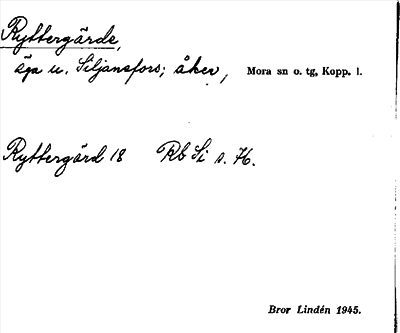 Ryttergärde,
äga u. Siljansfors; åker, Mora sn o. tg, Kopp. l.
Ryttergärd 18 Rb Si s. 76.
Bror Lindén 1945.